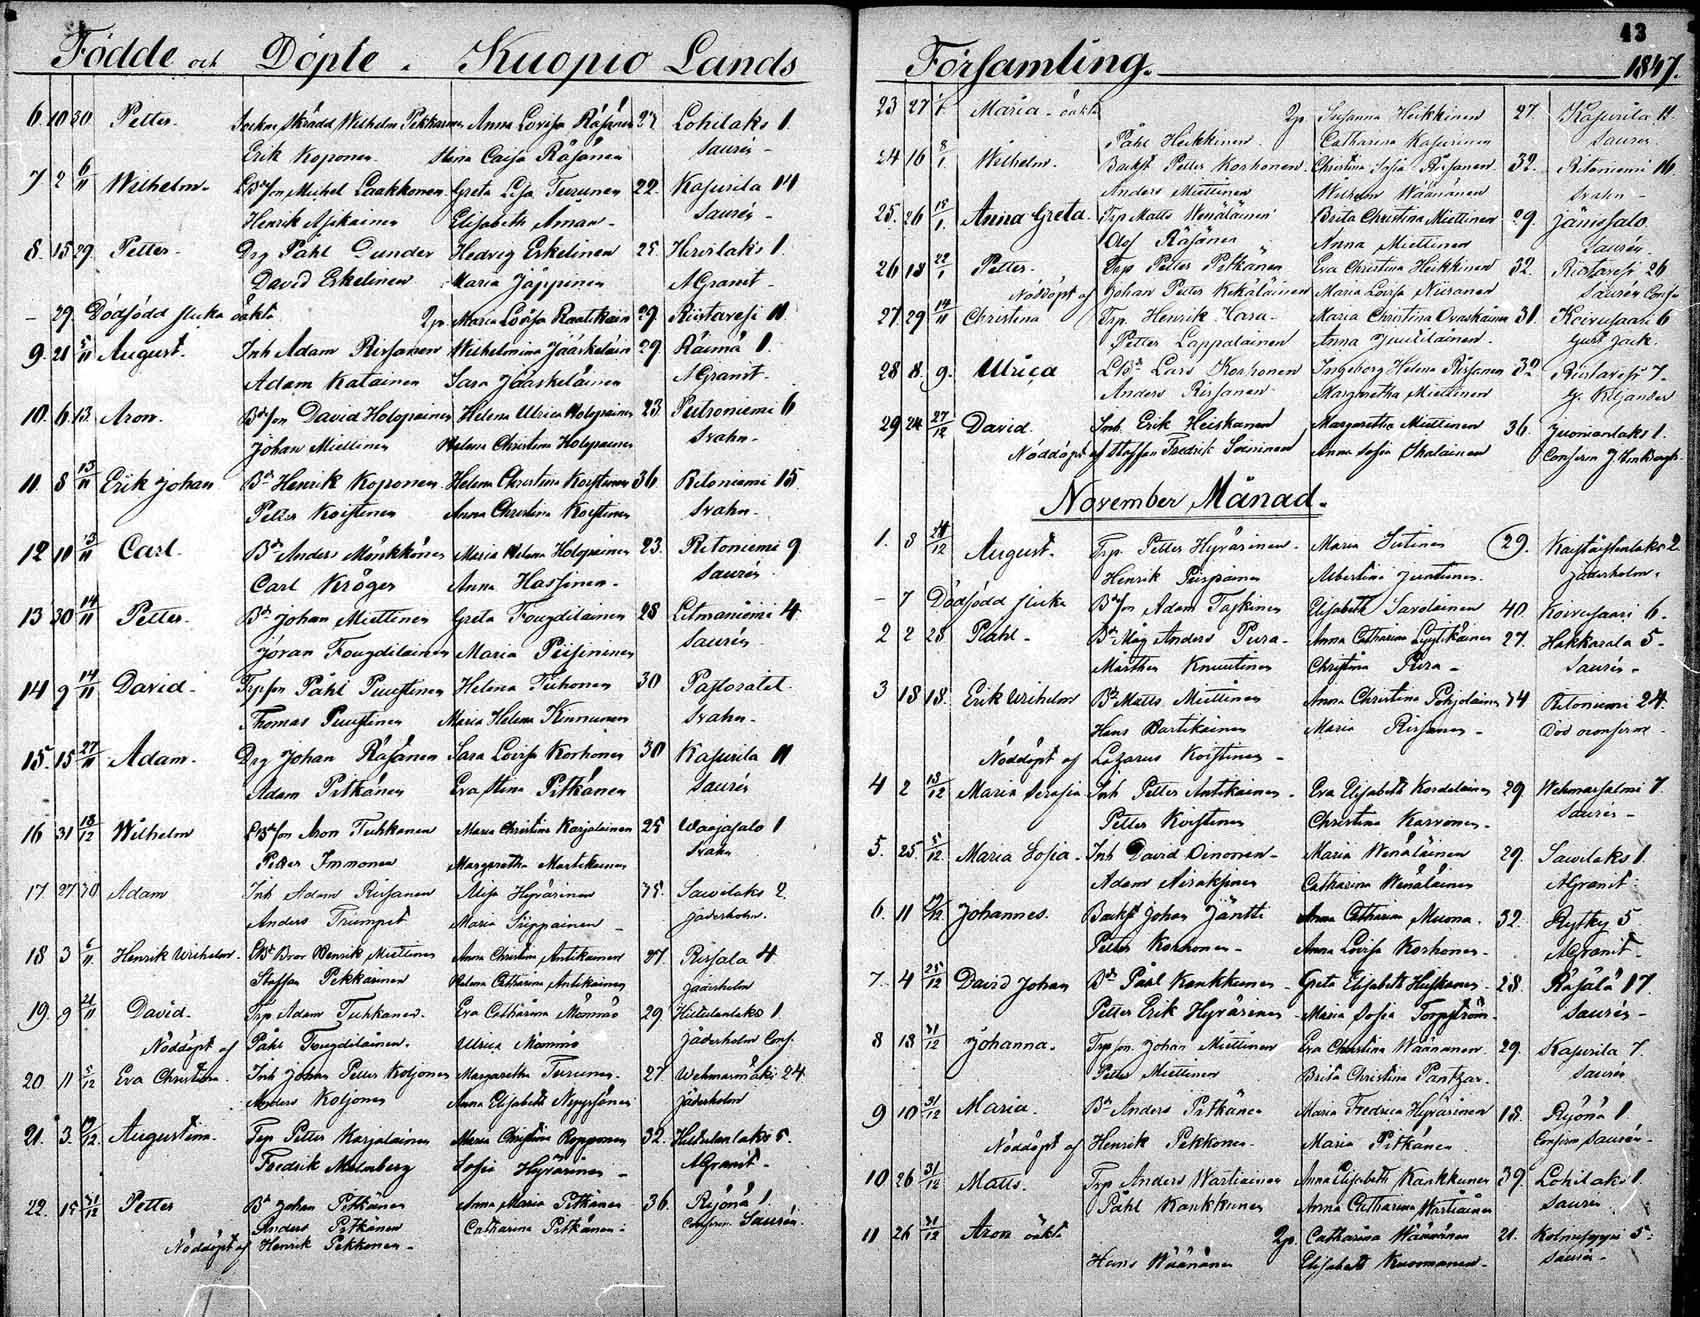 Födde och Döpte i Kuopio Lands
6. 10 30 Petter. Sockne Skrädd Wilhelm Pekkarinen Anna Lovisa Räsänen 27 Lohilaks 1.
Erik Koponen. Stina Caisa Räsänen Saurén
7 2 6/11 Wilhelm. Michel Laakkonen Greta Lisa Turunen 22. Kasurila 14
Henrik Asikainen Elisabeth Åman Saurén
8. 15 29. Petter. Drg Påhl Dunder Hedvig Eskelinen 25. Hirvilaks 1.
David Eskelinen Maria Jäppinen AGranit
– 29. Dödfödd flicka oäkta Qp. Maria Lovisa Raatikain 29. Riistavesi 11
9. 21 5/11 August. Inh Adam Rissanen Wilhelmina Jääskeläin 29 Räimä 1.
Adam Katainen Sara Jääskeläinen AGranit.
10. 6 13. Aron. David Holopainen Helena Ulrica Holopainen 23 Puutroniemi 6
Johan Miettinen Helena Christina Holopainen Svahn
11. 8 13/11 Erik Johan Bd Henrik Koponen Helena Christina Koistinen 36 Ritoniemi 15.
Petter Koistinen Anna Christina Koistinen Svahn
12 10 13/11 Carl. Bd Anders Mönkkönen Maria Helena Holopainen 23. Ritoniemi 9
Carl Kröger Anna Hassinen Saurén
13 30 14/11 Petter. Bd Johan Miettinen Greta Fougdilainen 28 Litmaniemi 4.
Jöran Fougdilainen Maria Piisinen Saurén
14 9 14/11 David. Trpson Påhl Puustinen Helena Tiihonen 30 Pastoratet.
Thomas Puustinen Maria Helena Kinnunen Svahn
15. 15 27/11 Adam. Drg Johan Räsänen Sara Lovisa Korhonen 30 Kasurila 11
Adam Pitkänen Eva Stina Pitkänen Saurén
16 31 18/12 Wilhelm Aron Tuhkanen Maria Christina Karjalainen 25 Waajasalo 1
Petter Immonen Margaretha Martikainen Svahn
17. 27 30 Adam Inh Adam Rissanen Hyvärinen 35. Sawilaks 2.
Anders Trumpet Maria Jäderholm.
18 3 6/11 Henrik Wilhelm. Henrik Miettinen Anna Christina Antikainen 27. Rissala 4
Staffan Pekkarinen Helena Catharina Antikainen Jäderholm
19. 9 21/11 David. Trp Adam Tuhkanen. Eva Catharina Mömmö 29 Hiltulanlaks 1.
Nöddöpt af Påhl Fougdilainen. Ulrica Mömmö Jäderholm Conf.
20. 11 5/12 Eva Christina. Inh Johan Petter Koljonen Margaretha Turunen. 27 Wehmarmäki 24
Anders Koljonen Anna Elisabeth Nyyssönen Jäderholm
21. 3. /12 Augustina. Trp Petter Karjalainen Maria Christina Ropponen 32. Hiltulanlaks 5.
Fredrik Malmberg Sofia Hyvärinen AGranit
22. 15 31/12 Petter Bd Johan Pitkänen Anna Maria Pitkänen 36. Ryönä 1.
Anders Pitkänen Catharina Pitkänen Conferm Saurén.
Nöddöpt af Henrik Pekkonen
43
Församling. 1847.
23 27 Maria oäkta Qp Susanna Heikkinen 27. Kasurila 11
Påhl Heikkinen Catharina Kasurinen Saurén
24 16 8/1 Wilhelm. Backst Petter Korhonen Christina Sofia Rissanen 32. Ritoniemi 16
Anders Miettinen Wilhelm Wäänänen Svahn
25. 26 18/1 Anna Greta. Trp Matts Wenäläinen Brita Christina Miettinen 29. Jänissalo
Olof Räsänen Anna Miettinen Saurén
26 18 22/1 Petter. Trp Petter Pitkänen Eva Christina Heikkinen 32. Riistavesi 26
Nöddöpt af Johan Petter Kekäläinen Maria Lovisa Niiranen Saurén Conf.
27. 29 14/11 Christina Trp Henrik Vasa Maria Christina Ovaskainen 31. Koivusaari 6
Petter Lappalainen Anna Juutilainen. Gust Jack.
28 8. 9. Ulrica Lars Korhonen Ingeborg Helena Rissanen 32 Riistavesi 7.
Anders Rissanen Margaretha Miettinen G. Kiljander
29 24 27/12 David Inh. Erik Heiskanen Margaretha Miettinen 36. Juonionlaks 1.
Nöddöpt af Staffan Fredrik Soininen Anna Sofia Ihalainen Conferm J.
November Månad.
1. 8 /12 August. Trp. Petter Hyvärinen. Maria Sutinen 29. 2
Henrik Piispanen Albertina Juntunen. Jäderholm.
– 7 Dödfödd flicka Adam Taskinen Elisabeth Savolainen 40 Koivusaari 6.
2 2 28 Påhl. Bd Måg Anders Pura Anna Catharina Lyytikäinen 27. Hakkarala 5
Mårthen Knuutinen Christina Pura Saurén
3 18 18. Erik Wilhelm Bd Matts Miettinen Anna Christina Pohjolainen 34 Ritoniemi 24.
Hans Partikainen Maria Rissanen Död oconferm.
Nöddöpt af Lazarus Koistinen
4 2 18/12 Maria Serafia Inh Petter Antikainen Eva Elisabeth Kordelainen 29 Wehmarsalmi 7
Petter Koistinen Christina Karvonen Saurén
5. 25 5/12. Maria Sofia Inh David Oinonen Maria Wenäläinen 29. Sawilaks 1.
Adam Airaksinen Catharina Wenäläinen AGranit
6. 11 /12 Johannes. Backst Johan Jäntti Anna Catharina Muona. 32. Rytky 5
Petter Korhonen Anna Lovisa Korhonen AGranit
7. 4 25/12 David Johan Bd Påhl Kankkunen Greta Elisabeth Huiskonen 28. Räsälä 17.
Petter Erik Hyvärinen Maria Sofia Forsström Saurén
8 18 31/12 Johanna. Trpson Johan Miettinen Eva Christina Wäänänen 29. Kasurila 7.
Petter Miettinen Brita Christina Pantzar. Saurén
9 10 31/12 Maria. Bd Anders Pitkänen Maria Fredrica Hyvärinen 18. Ryönä 1.
Nöddöpt af Henrik Pekkonen Maria Pitkänen Conferm Saurén
10 26 31/12 Matts. Trp Anders Wartiainen Anna Elisabeth Kankkunen 39. Lohilaks 1.
Påhl Kankkunen Anna Catharina Wartiainen Saurén
11 26 31/12 Aron oäkta Qp. Catharina Wäänänen 21. Kolmisoppi 5.
Hans Wäänänen Elisabeth Kuosmanen Saurén